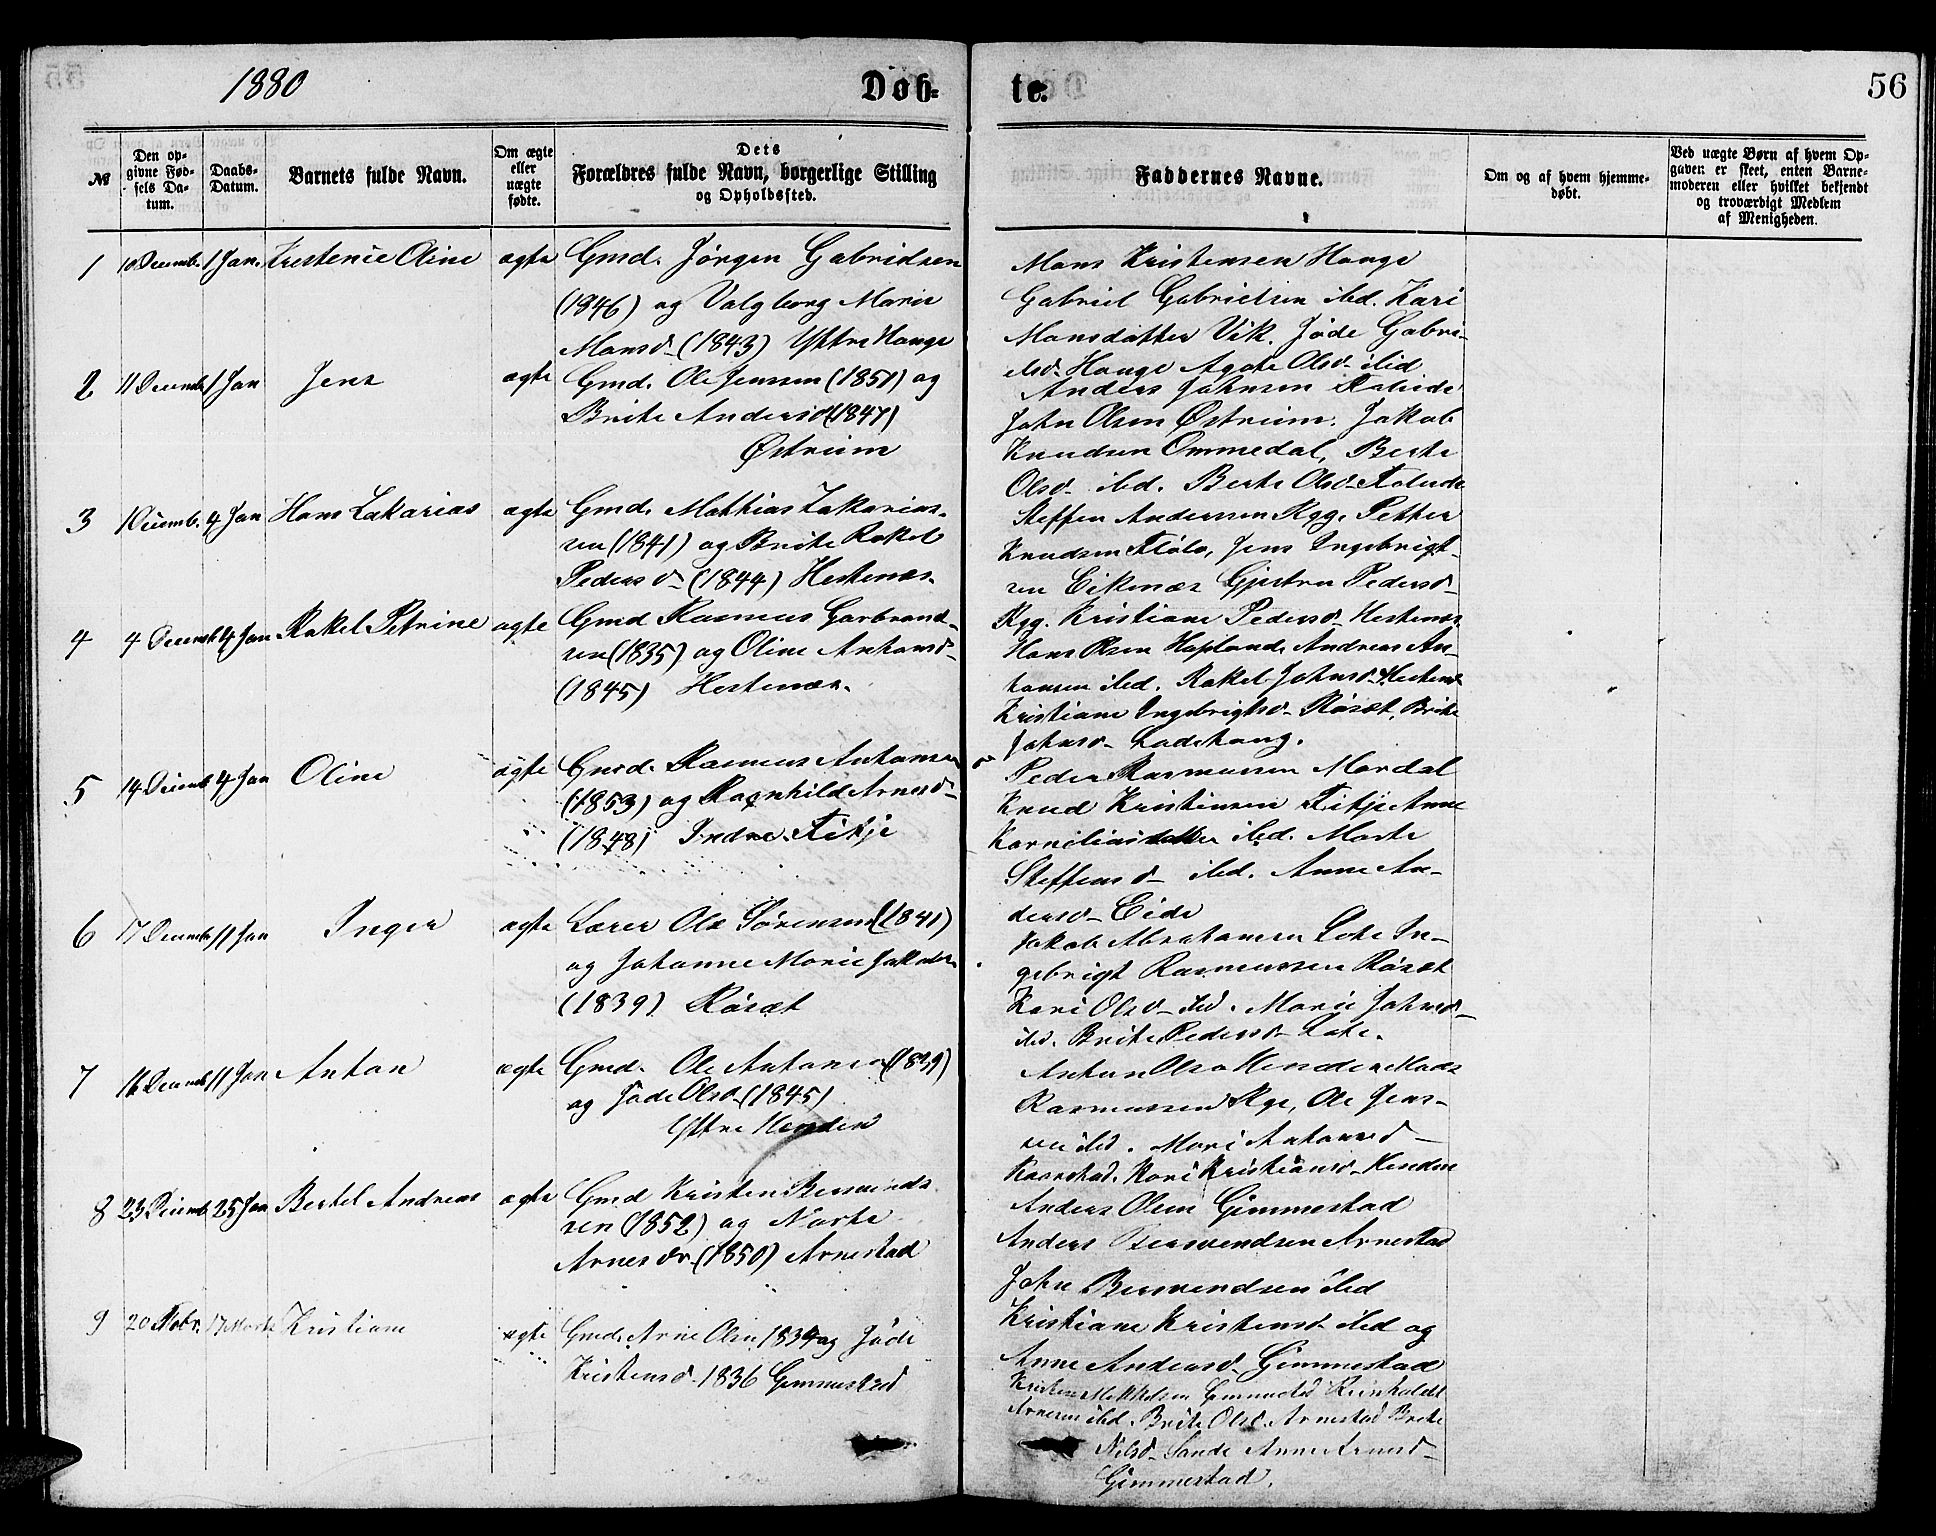 1880
Døb-
te.
56
№
Den op-
givne Fød-
sels Da-
tum.
Daabs-
Datum.
Barnets fulde Navn.
Om ægte
eller
uægte
fødte.
Dets
Forældres fulde Navn, borgerlige Stilling
og Opholdssted.
Faddernes Navne.
Om og af hvem hjemme-
døbt.
Ved uægte Børn af hvem Op-
gaven er skeet, enten Barne-
moderen eller hvilket bekjendt
og troværdigt Medlem
af Menigheden.
1 10 Decemb. 1 Jan. Kristense Oline ægte Gmd. Jørgen Gabrielsen
(1846) og Valgborg Marie
Monsd. (1843) Yttre Hauge
Mons Kristensen Hauge
Gabriel Gabrielsen ibd. Kari
Monsdatter Vik. Jøde Gabri-
elsd. Hauge Agate Olsd. ibid
2 11 Decemb 1 Jan Jens ægte Gmd. Ole Jenssen (1851) og
Brite Andersd. (1847)
Østrium
Anders Johnsen
John Olsen Østrium. Jakob
Knudsen Ommedal, Berte
Olsd. ibd. Berte Olsd.
3 1 Decemb. 4 Jan Hans Zakarias ægte Gmd. Mathias Zakarias-
sen (1841) og Brite Rakel
Pedersd. (1844) Hestenæs.
Steffen Anderssen Ryg. Petter
Knudsen Flølo, Jens Ingebrigt-
sen Eikenæs Gjertru Pedersd.
Ryg. Kristiane Pedersd. Hestenæs
4 4 Decemb. 4 Jan Rakel Petrine ægte Gmd Rasmus Garbrand-
sen (1835) og Oline Antonsd.
(1845) Hestenæs.
Hans Olsen Hopland, Andreas An-
tonsen ibd. Rakel Johnsd. Hestenæs
Kristiane Ingebrigtsd. Røsæt, Brite
Johnsd. Ladehaug.
5 14 Decemb 4 Jan Oline ægte Gmd. Rasmus Antonsen
(1853) og Ragnhild Arnesd.
(1848) Indre Fitje
Peder Rasmussen Mardal
Knud Kristensen Fitje Anne
Korneliusdatter ibd. Marte
Steffensd. ibd. Anne An-
dersd. Eide
6 17 Decemb 11 Jan Inger ægte Lærer Ole Sørensen (1841)
og Johanne Marie Jakobsd.
(1839) Røsæt
Jakob Abrahamsen Lote In-
gebrigt Rasmussen Røsæt
Kari Olsd. ibd. Marie Johnsd.
ibd. Brite Pedersd. Lote.
7 16 Decemb 11 Jan Anton ægte Gmd. Ole Antonsen (1839)
og Jøde Olsd. (1845)
Yttre Henden
Anton Olsen Henden Mads
Rasmussen Ryg, Ole Jens-
sen ibd. Mari Antonsd.
Kaarstad. Mari Kristiansd. Henden
8 23 Decemb 25 Jan Bertel Andreas ægte Gmd Kristen Bersvends
sen (1852) og Marte
Arnesdr. (1850) Arnestad
Anders Olsen Gimmestad
Anders Bersvendsen Arnestad
John Bersvendsen ibd
Kristiane Kristensd. ibd og
Anne Andersd. Gimmestad
9 20 Febr. 17 Marts Kristiane ægte Gmd. Arne Olsen 1834 og Jøde
Kristensd. 1836 Gimmestad
Kristen Mikkelsen Gimmestad Reinholdt
Arnesen ibd. Brite Olsd. Arnestad Brite
Nilsd. Sande Anne Arnesd.
Gimmestad.